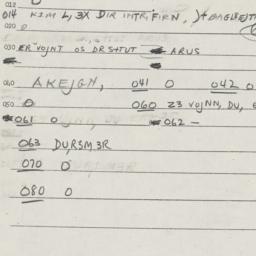 012
014 KIM L, 3X DIR INTRIFIRN,
020 0
030 ER VOJNT OS DRSTUT ARUS
040 AKEJGN, 041 0 042 0
050 0 060 23 VOJNN, DU,
061 0 062 —
063 DU,RSM3R
070 0
080 0